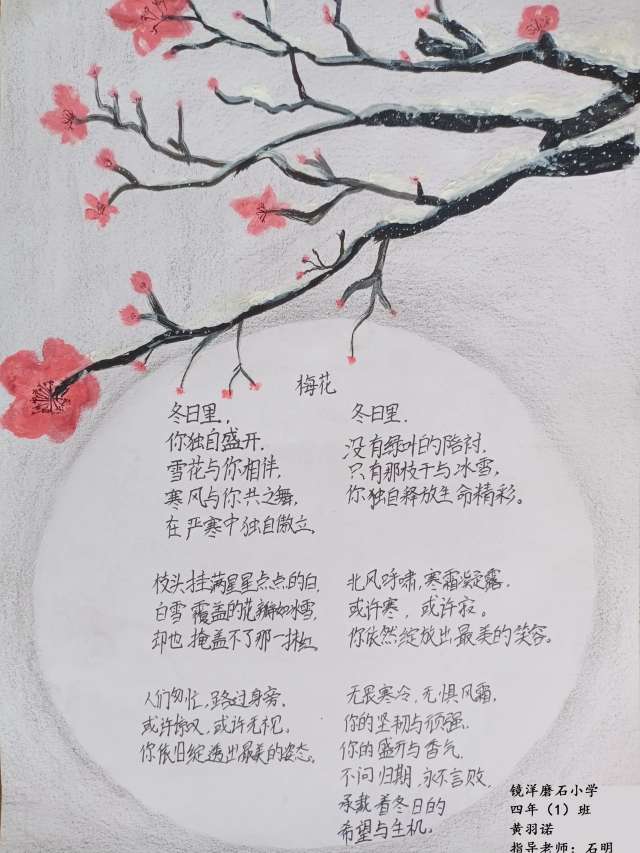 梅花
冬日里，
你独自盛开，
雪花与你相伴，
寒风与你共之舞，
在严寒中独自傲立，
枝头挂满星星点点的白，
白雪覆盖的花瓣如冰雪，
却也掩盖不了那一抹红，
人们匆忙，路过身旁，
或许惊叹，或许无视，
你依旧绽透出最美的姿态。
冬日里，
没有绿叶的陪衬，
只有那枝干与冰雪，
你独自释放生命精彩。
北风呼啸，寒霜凝露，
或许寒，或许寂。
你依然绽放出最美的笑容。
无畏寒冷，无惧风霜，
你的坚韧与顽强，
你的盛开与香气，
不问归期，永不言败，
承载着冬日的
希望与生机。
镜洋磨石小学
四年（1）班
黄羽诺
指导老师：石明